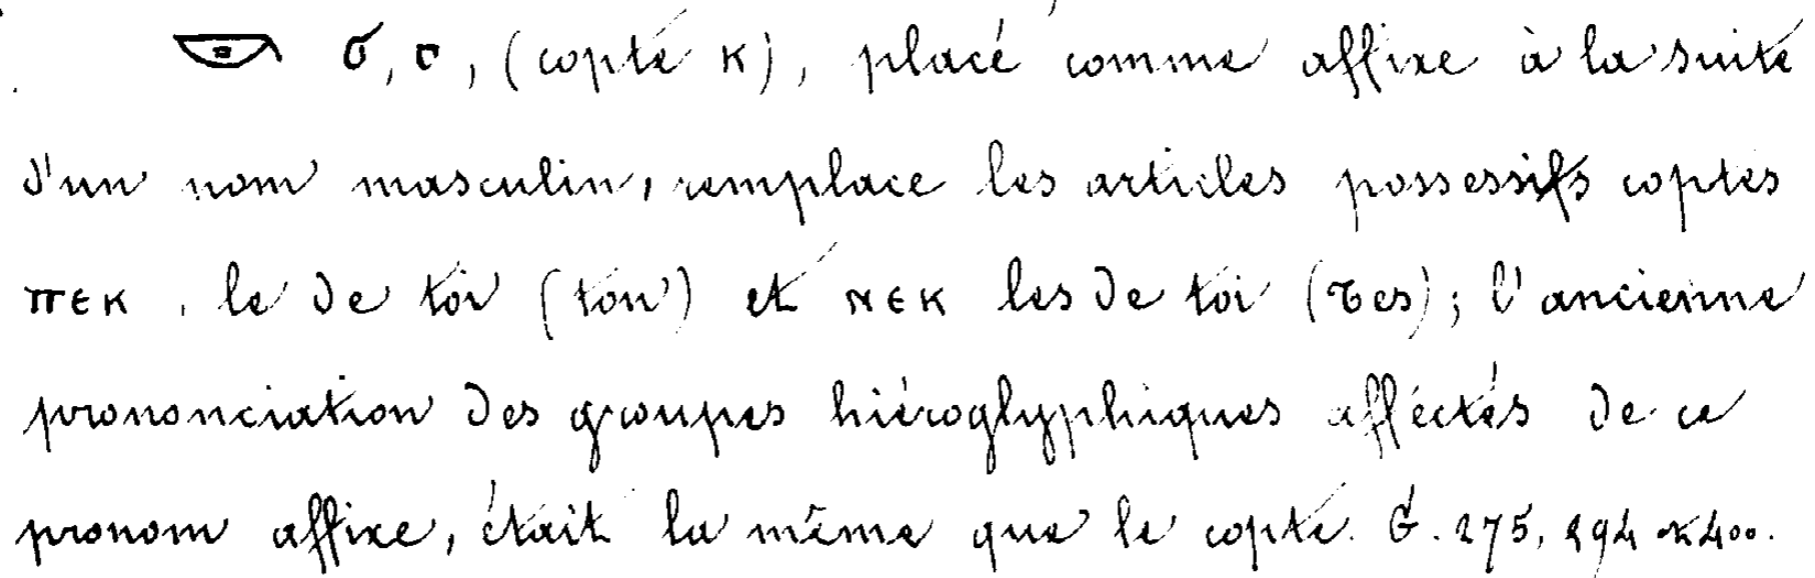 𓎟 σ, σ, (copte ⲕ), placé comme affixe à la suite
d'un nom masculin, remplace les articles possessifs coptes
ⲡⲉⲕ, le de toi (ton) et ⲛⲉⲕ les de toi (tes); l'ancienne
prononciation des groupes hiéroglyphiques affectés de ce
pronom affixe, était la même que le copte. G. 275, 294 et 400.